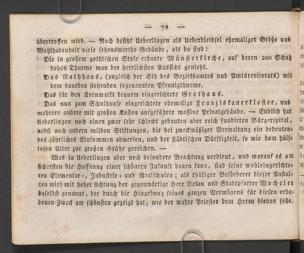 — 72 —
übertroffen wird. — Noch besitzt Ueberlingen als Ueberbleibsel ehemaliger Größe und
Wohlhabenheit viele sehenswerthe Gebäude, als da sind:
Die in großem gothischen Style erbaute Münsterkirche, auf deren 200 Schuh
hohen Thurme man der herrlichsten Aussicht genießt.
Das Rathhaus, (zugleich der Sitz des Bezirksamtes und Amtsrevisorats) mit
dem daneben stehenden sogenannten Pfennigthurme.
Das für den Kornmarkt bequem eingerichtete Grethaus.
Das nun zum Schulhause eingerichtete ehemalige Franziskanerkloster, und
mehrere andere mit großen Kosten aufgeführte massive Privatgebäude. — Endlich hat
Ueberlingen noch einen zwar sehr schlecht gebauten aber reich fundirten Bürgerspital,
nebst noch andern milden Stiftungen, die bei zweckmäßiger Verwaltung ein bedeuten-
des jährliches Einkommen abwerfen, und der städtischen Dürftigkeit, so wie dem hülf-
losen Alter zur großen Stütze gereichen. —
Was in Ueberlingen aber noch besondere Beachtung verdient, und worauf es am
sichersten die Hoffnung einer schönern Zukunft bauen kann, sind seine wohleingerichte-
ten Elementar-, Industrie- und Realschulen; als thätiger Beförderer dieser Anstal-
ten wird mit hoher Achtung der gegenwärtige Herr Dekan und Stadtpfarrer Wocheler
daselbst genannt, der durch die Hingebung seines ganzen Vermögens für diesen erha-
benen Zweck am schönsten gezeigt hat, wie der wahre Priester dem Herrn dienen solle.